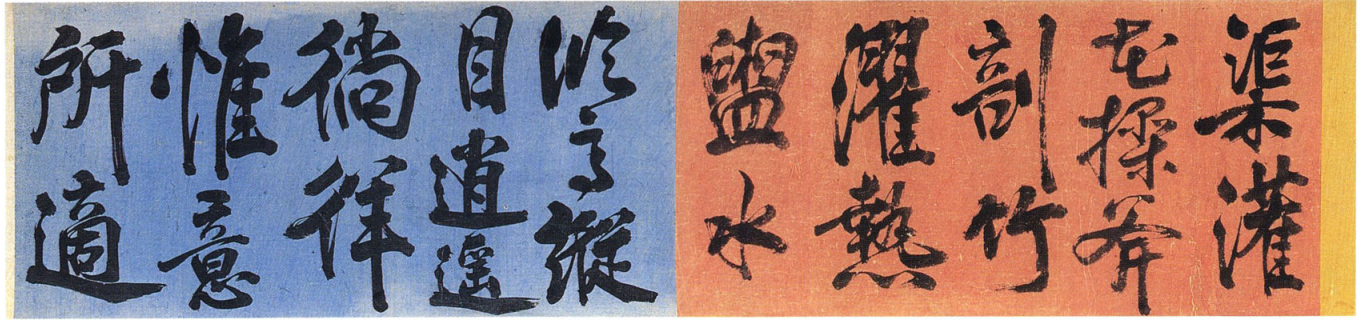 渠灌
花操斧
剖竹
濯熱
盥水
臨高縱
目逍遙
徜徉
惟意
所適